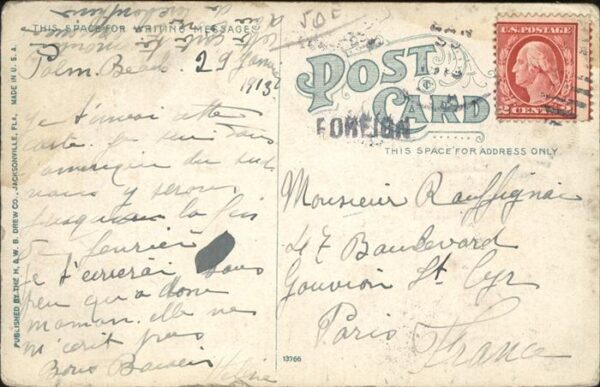 THIS SPACE FOR WRITING MESSAGES
50¢
Palm Beach 29 Janvier
1913
je t'envoi cette
carte. je suis dans
amerique du sud
nous y serons
jusqu'au la fin
de fevrier
je t'ecrirai sous
peu qu'a donc
maman elle ne
m'ecrit pas
Bons Baisers
Hélène
PUBLISHED BY THE H. & W. B. DREW CO., JACKSONVILLE, FLA. MADE IN U.S.A.
POST CARD
FOREIGN
THIS SPACE FOR ADDRESS ONLY
U.S. POSTAGE
2 CENTS 2
Monsieur Rauffignac
47 Boulevard
Gouvion St. Cyr
Paris
France
13766